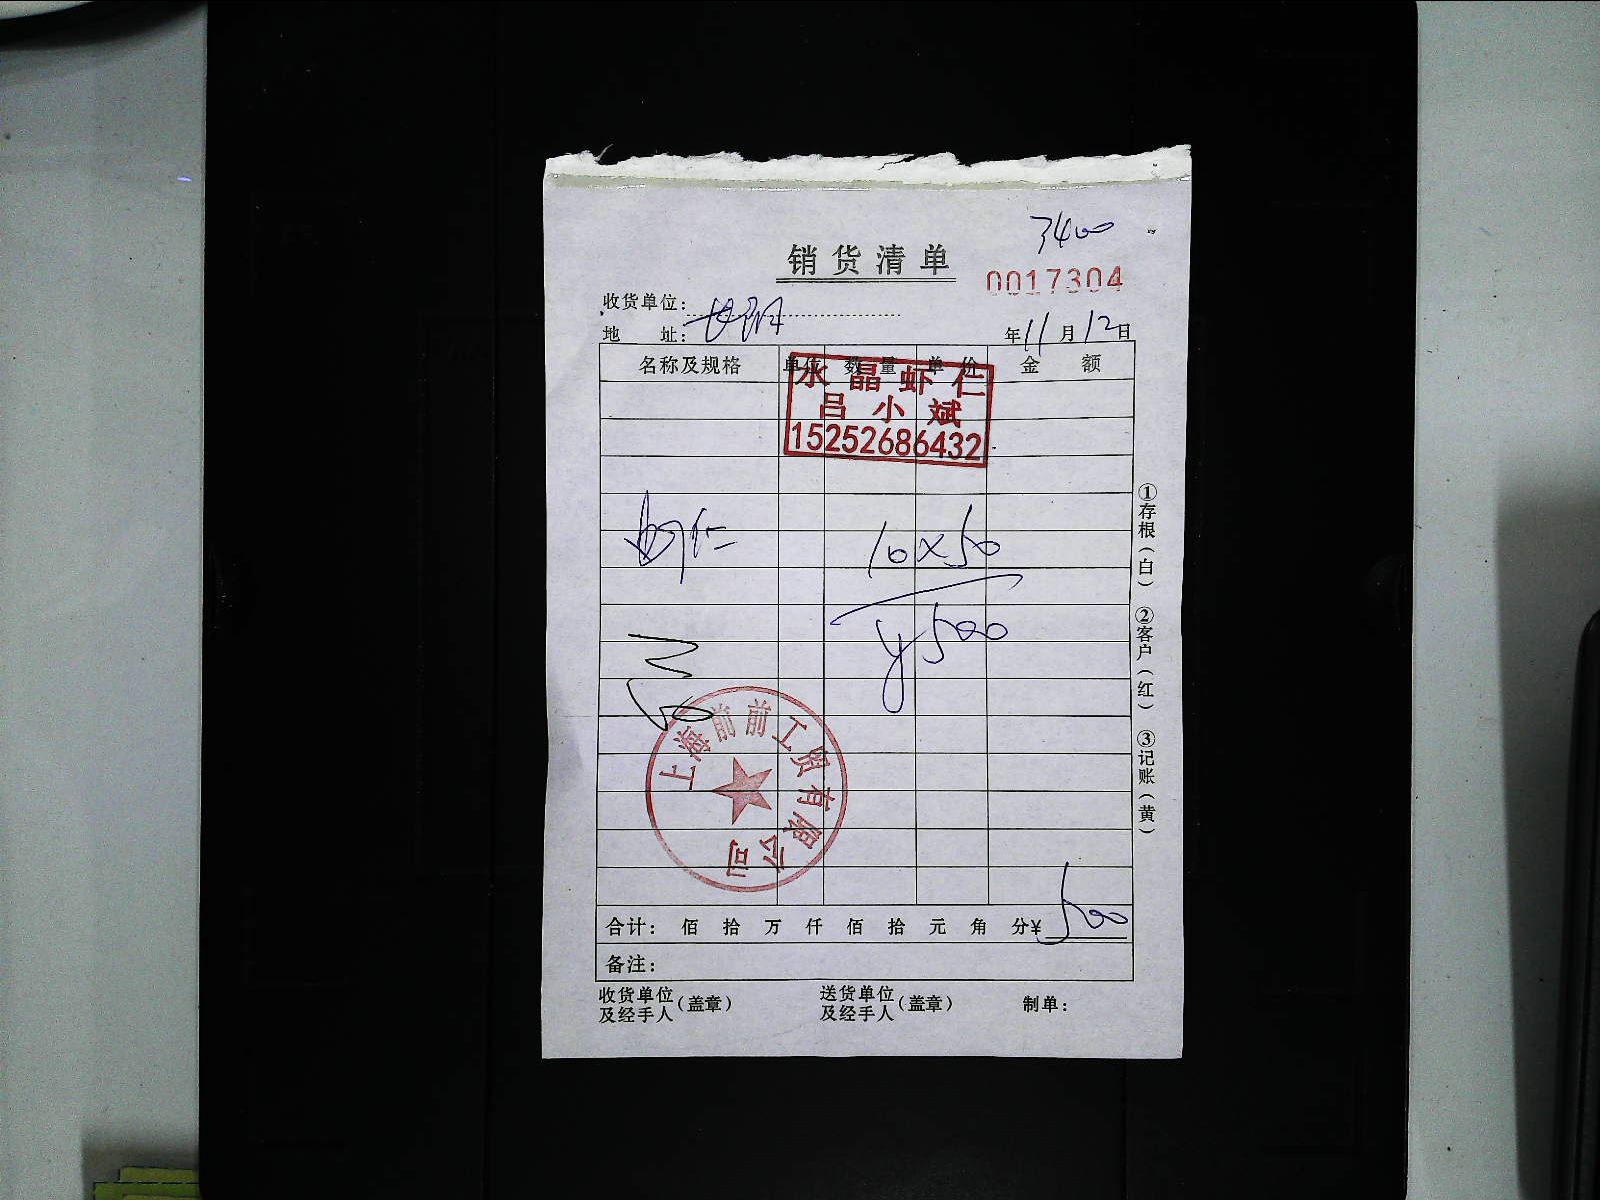 3400
销货清单
0017304
收货单位:
地 址: 长阳
年11月12日
名称及规格 单位 数量 单价 金额
水晶虾仁
吕小斌
15252686432
虾仁 10×50
¥500
上海前前工贸有限公司
合计: 佰 拾 万 仟 佰 拾 元 角 分¥ 500
备注:
收货单位及经手人(盖章) 送货单位及经手人(盖章) 制单:
①存根(白) ②客户(红) ③记账(黄)